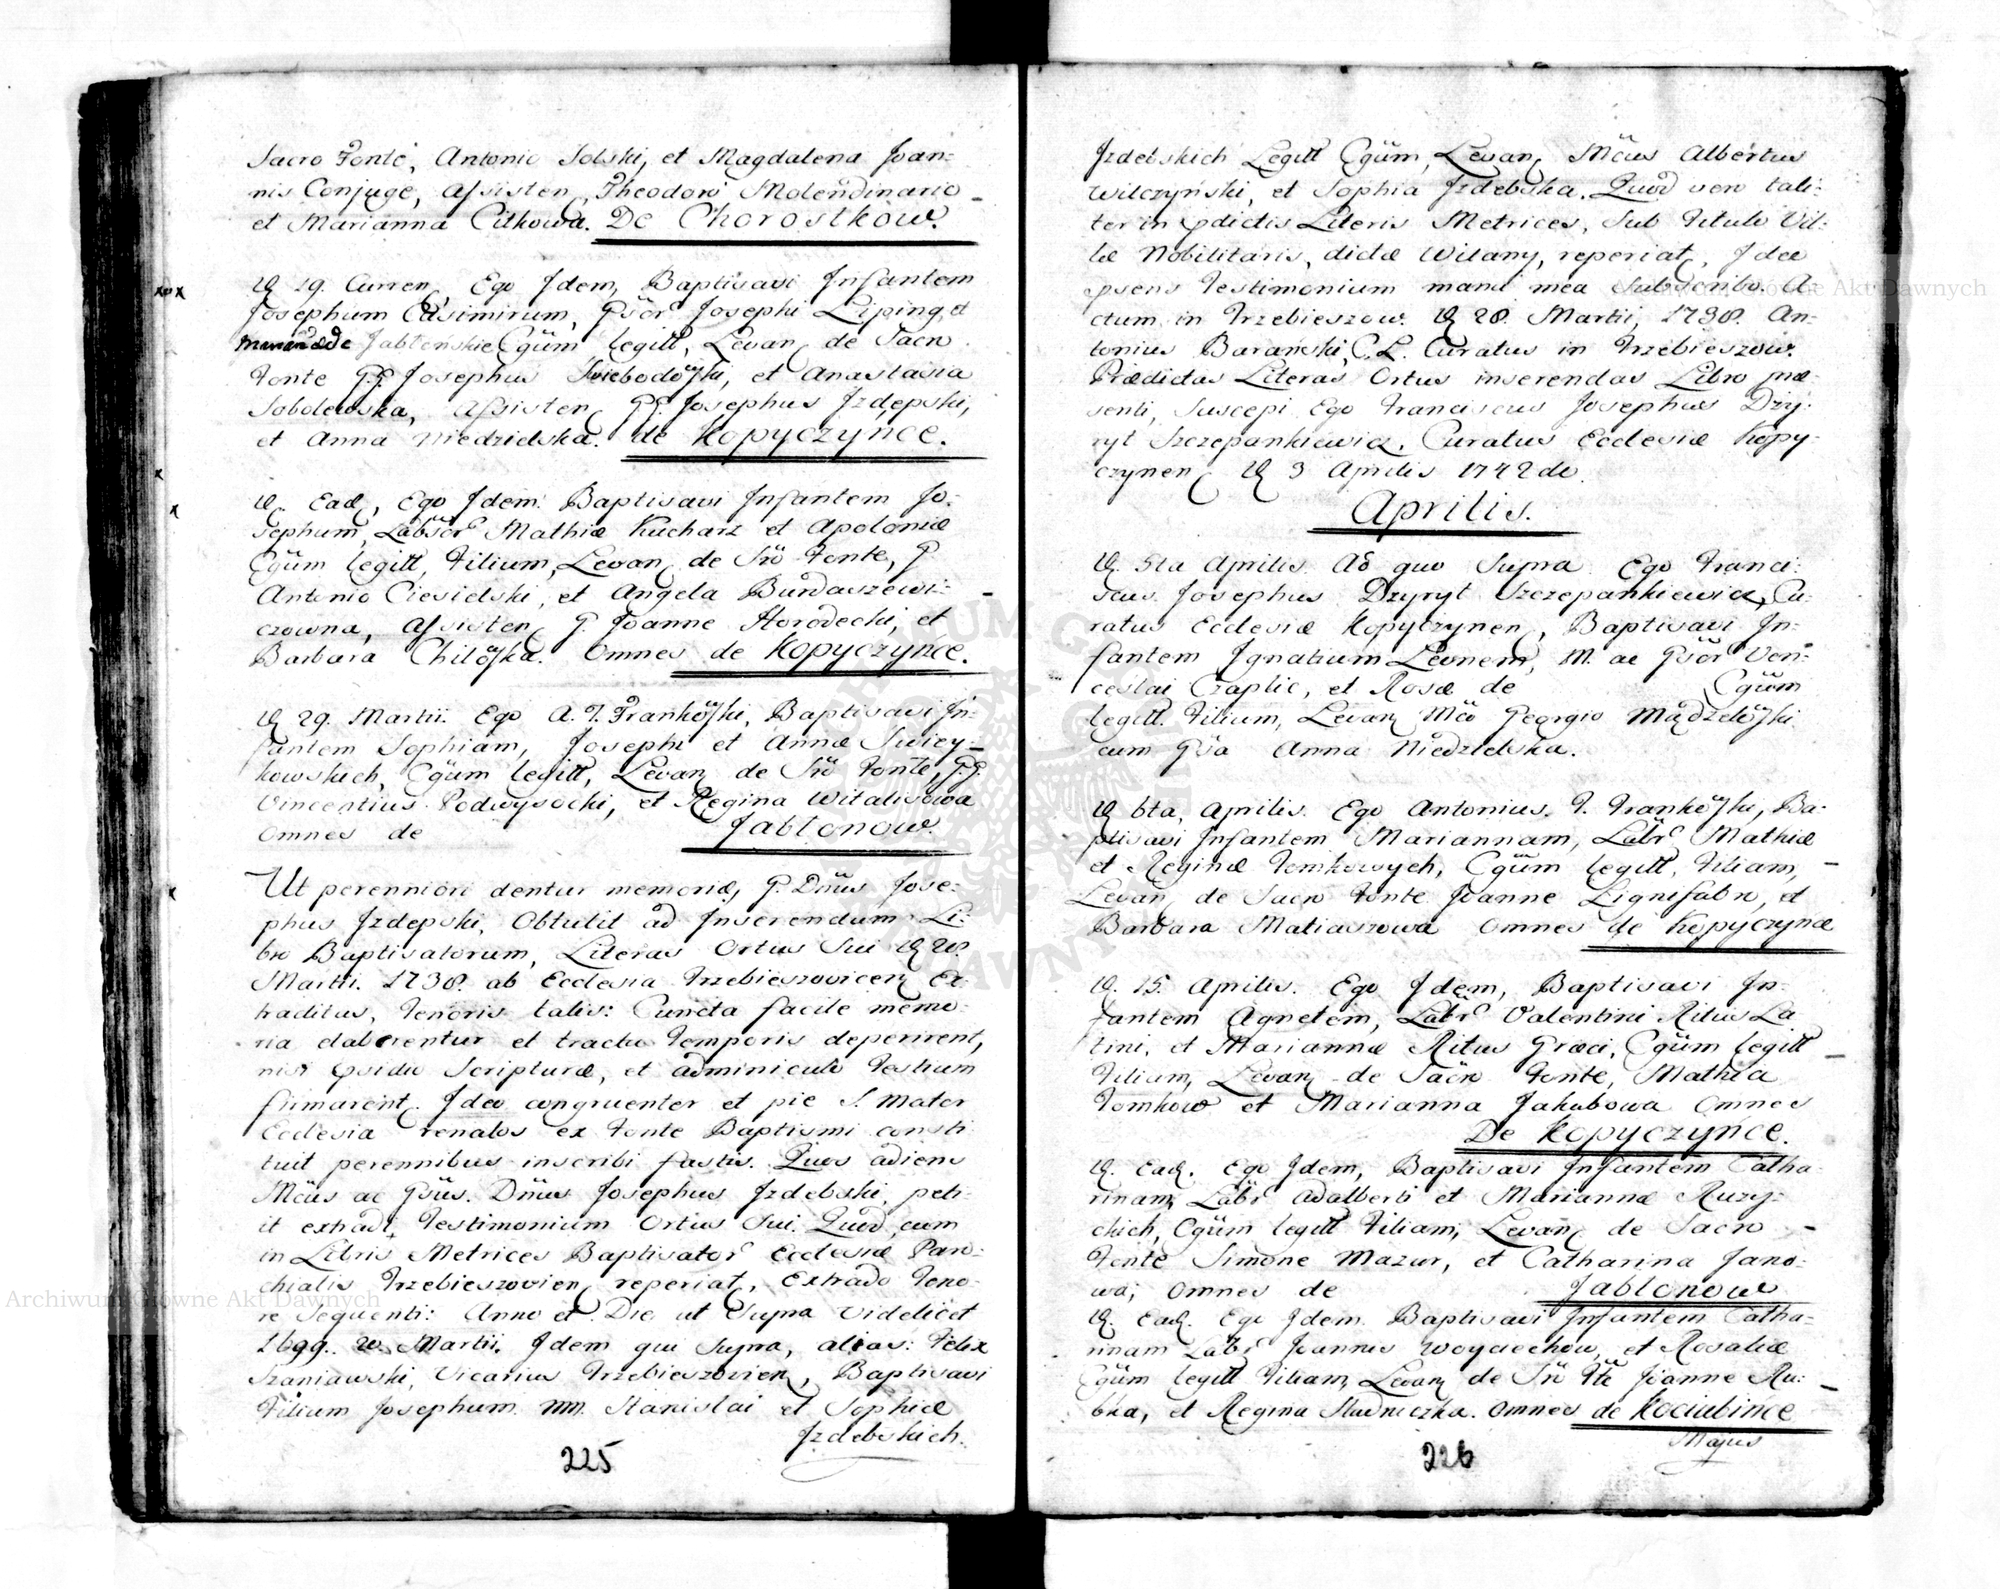 Sacro Fonte, Antonio Solski, et Magdalena Joan:
nis Conjuge, Assisten, Theodoro Molendinario
et Marianna Citkowa. De Chorostkow.
D 19. Curren, Ego Idem, Baptisavi Infantem
Josephum Casimirum, Gsör Josephi Liping, et
Jabłonskie Cgüm legitt, Levan de Sacro
Fonte GG Josephus Swiebodoski, et Anastasia
Sobolewska, Assisten GG Josephus Jzdepski,
et Anna Niedzielska. de Kopyczynce.
D. Ead, Ego Idem Baptisavi Infantem Jo:
sephum, Labör Mathiæ Kucharz et Apoloniæ
Cgüm legitt, Filium, Levan de Srö Fonte, G
Antonio Ciesielski, et Angela Burdaszewi:
czowna, Assisten G. Joanne Horodecki, et
Barbara Chiloska. Omnes de Kopyczynce.
D 29. Martii. Ego A. F. Frankoski, Baptisavi In:
fantem Sophiam, Josephi et Annæ Swiey
kowskich, Cgüm legitt, Levan de Srö Fonte, G.G.
Vincentius Podwysocki, et Regina Witalisowa
Omnes de Jabłonow.
Ut perenniori dentur memoriæ, G. Dnüs Jose:
phus Jzdepski, Obtulit ad Inserendum Li:
bro Baptisatorum, Literas Ortus Sui D 28.
Martii. 1738. ab Ecclesia Trzebieszovicen Ex:
traditus, Tenoris talis: Cuncta facile memo:
ria elaberentur et tractu Temporis deperirent,
nisi Scripturæ, et adminiculo Testium
firmarent. Ideo congruenter et pie S. Mater
Ecclesia renatos ex Fonte Baptismi consti
tuit perennibus inscribi fastis. Quos adiens
Mcüs ac Gsüs. Dnüs Josephus Jzdebski, peti:
it extradi, Testimonium Ortus Sui. Quod, cum
in Libris Metrices Baptisator Ecclesiæ Paro:
chialis Trzebieszovien reperiat, Extrado Teno:
re Sequenti: Anno et Die ut Supra videlicet
1699. 20. Martii. Idem qui Supra, alias: Felix
Szaniawski, Vicarius Trzebieszovien, Baptisavi
Filium Josephum MM. Stanislai et Sophiæ
Jzdebskich.
225
Jzdebskich Legitt Cgüm, Levan Mcüs Albertus
Wilczyński, et Sophia Jzdebska. Quod vero tali:
ter in pdictis Literis Metrices, Sub Titulo Vil:
læ Nobilitaris, dictæ Witany, reperiat, Ideo
psens Testimonium manu mea Subscribo. A:
ctum in Trzebieszow. D 28. Martii, 1738. An:
tonius Barański, C.L. Curatus in Trzebieszow.
Prædictas Literas Ortus inserendas Libro præ
senti, Suscepi Ego Franciscus Josephus Dzy:
ryt Szczepankiewicz. Curatus Ecclesiæ Kopy:
czynen D 3 Aprilis 1742 do.
Aprilis.
D. 5ta Aprilis. Ad quo Supra Ego Franci:
scus Josephus Dzyryt Szczepankiewicz, Cu:
ratus Ecclesiæ Kopyczynen, Baptisavi In:
fantem Ignatium Leonem, M. ac Gsör Ven:
ceslai Czaplic, et Rosæ de Cgüm
legitt. Filium, Levan Mcö Georgio Mądzeloski
cum Gsa Anna Niedzielska.
D 6ta, Aprilis. Ego Antonius. F. Frankoski, Ba:
ptisavi Infantem Mariannam, Labr Mathiæ
et Reginæ Tomkowych, Cgüm legitt, Filiam,
Levan de Sacro Fonte Joanne Lignifabro, et
Barbara Matiaszowa Omnes de Kopyczynce
D. 15. Aprilis. Ego Idem, Baptisavi In:
fantem Agnetem, Labr Valentini Ritus La
tini, et Mariannæ Ritus Græci, Cgüm legitt
Filiam, Levan de Sacro Fonte, Mathia
Tomkow et Marianna Jakubowa Omnes
De Kopyczynce.
D. Ead. Ego Idem, Baptisavi Infantem Catha:
rinam, Labr Adalberti et Mariannæ Ruzy:
ckich, Cgüm legitt Filiam, Levan de Sacro
Fonte Simone Mazur, et Catharina Jano:
wa, Omnes de Jabłonow
D. Ead. Ego Idem Baptisavi Infantem Catha:
rinam Labr Joannis Woyciechow, et Rosaliæ
Cgüm legitt Filiam, Levan de Srö Fte Joanne Ru:
bka, et Regina Studniczka. Omnes de Kociubince
Majus
226
Archiwum Główne Akt Dawnych
Archiwum Główne Akt Dawnych